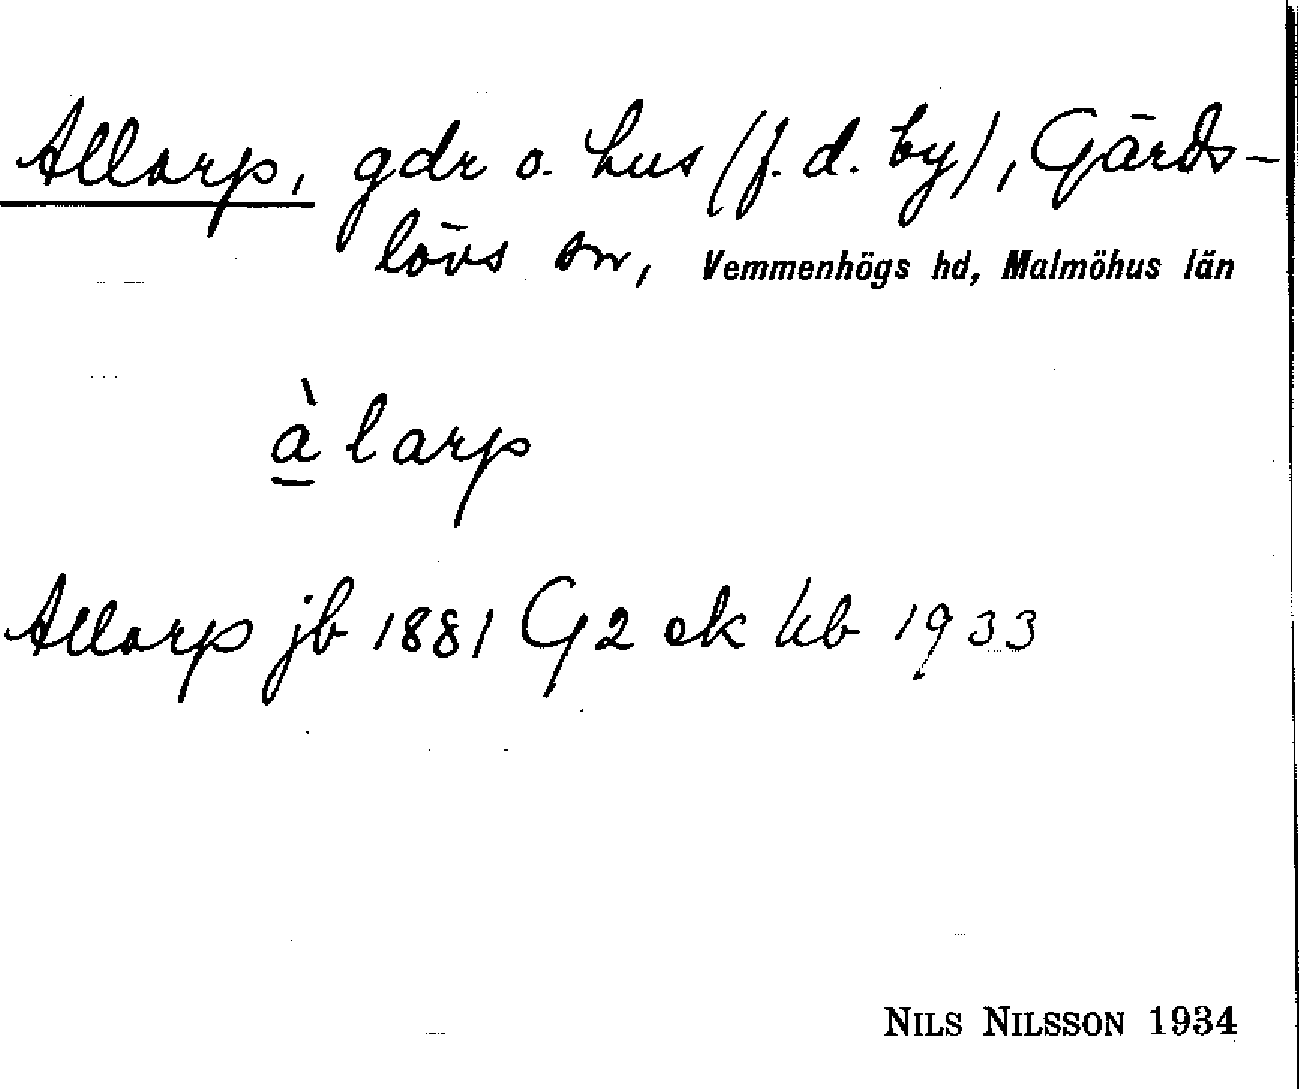 Allarp, gdr o. hus (f. d. by), Gärds-
lövs sn, Vemmenhögs hd, Malmöhus län
à̠larp
Allarp jb 1881 G2 ek kb 1933
NILS NILSSON 1934